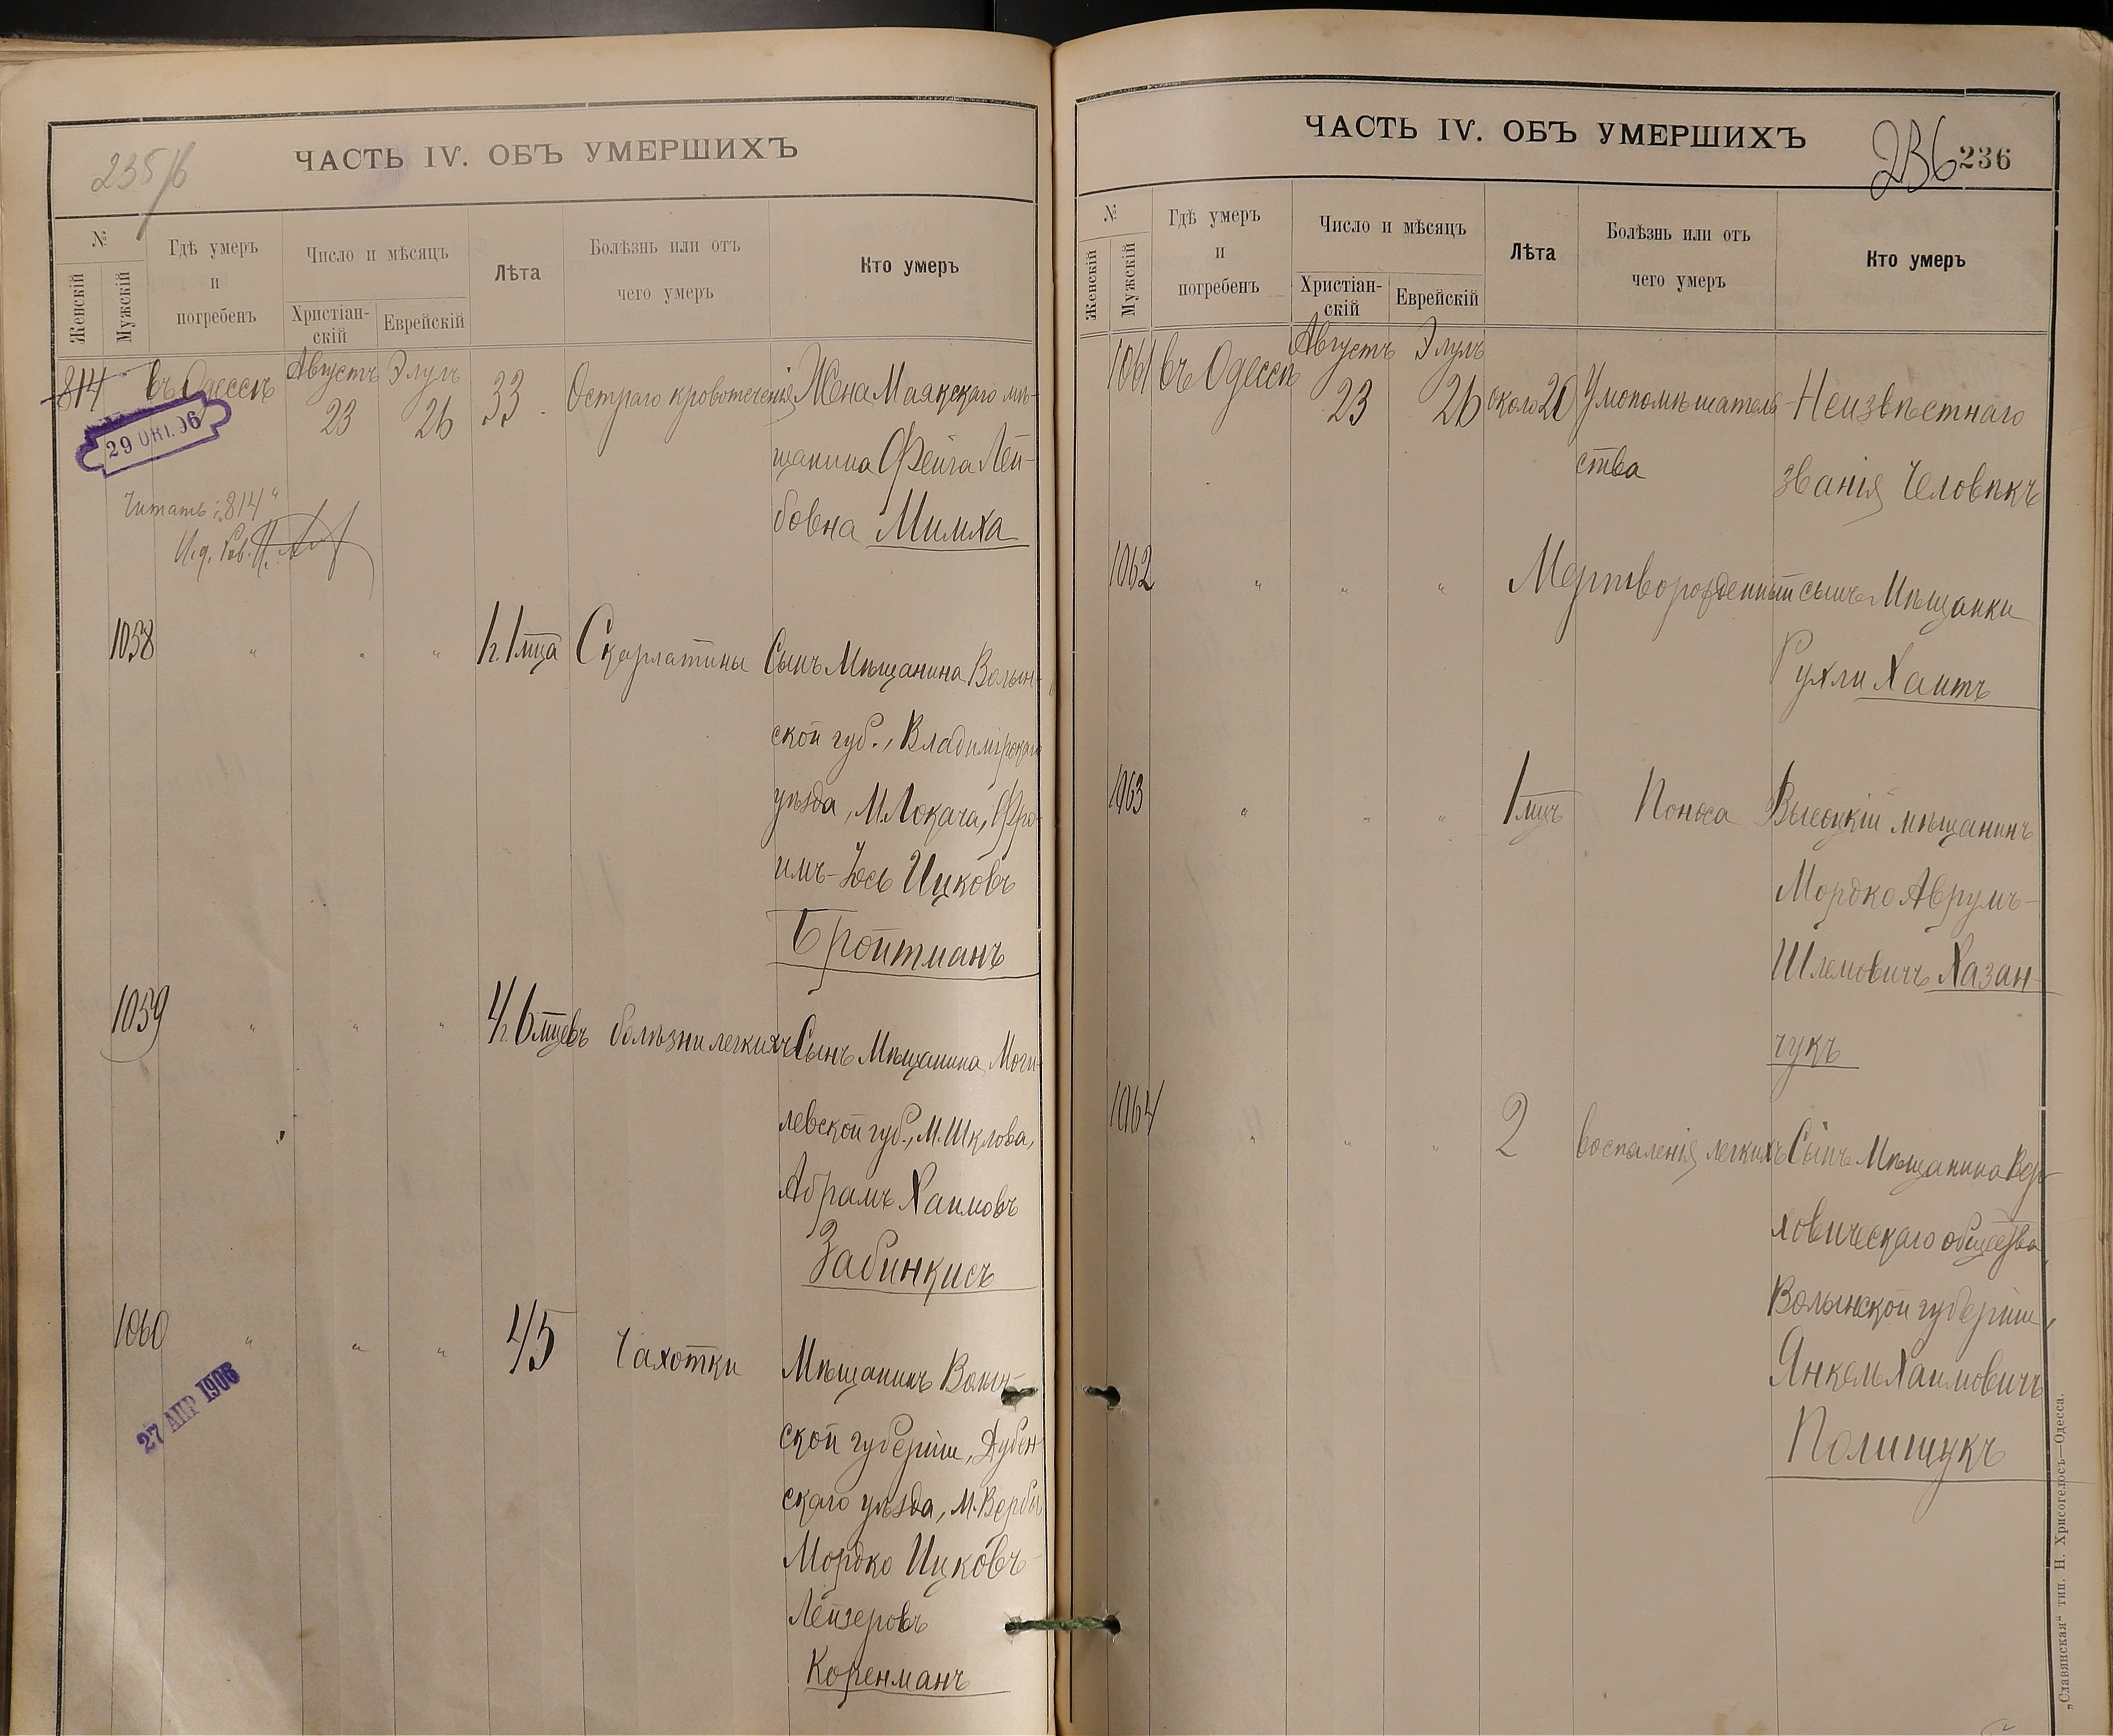 235/б
ЧАСТЬ IV. ОБЪ УМЕРШИХЪ
№
Женскій
Мужскій
Гдѣ умеръ
и
погребенъ
Число и мѣсяцъ
Христіан-
скій
Еврейскій
Лѣта
Болѣзнь или отъ
чего умеръ
Кто умеръ
814 въ Одессѣ Августъ 23 Элулъ 26 33 Остраго кровотеченія Жена Маякскаго мѣ-
щанина Фейга Лей-
бовна Мимха
29 ОКТ. 06
Читать: „814“
И.д. Рав.
1058 „ „ „ 1 г. 1 мца Скарлатины Сынъ Мѣщанина Волын-
ской губ., Владимірскаго
уѣзда, М. Локача, Фро-
имъ-Іось Ицковъ
Бройтманъ
1059 „ „ „ 4 г. 6 мцевъ болѣзни легкихъ Сынъ Мѣщанина Моги-
левской губ., М. Шклова,
Абрамъ Хаимовъ
Забинкисъ
1060 „ „ „ 45 Чахотки Мѣщанинъ Волын-
ской губерніи, Дубен-
скаго уѣзда, М. Вербы
Мордко Ицковъ-
Лейзеровъ
Коренманъ
27 АПР 1906
ЧАСТЬ IV. ОБЪ УМЕРШИХЪ
236 236
№
Женскій
Мужскій
Гдѣ умеръ
и
погребенъ
Число и мѣсяцъ
Христіан-
скій
Еврейскій
Лѣта
Болѣзнь или отъ
чего умеръ
Кто умеръ
1061 въ Одессѣ Августъ 23 Элулъ 26 около 20 Умопомѣшатель-
ства
Неизвѣстнаго
званія Человѣкъ
1062 „ „ „ Мертворожденный сынъ Мѣщанки
Рухли Хаитъ
1063 „ „ „ 1 мцъ Поноса Высоцкій мѣщанинъ
Мордко Аврумъ-
Шлемовичъ Хазан-
чукъ
1064 „ „ „ 2 воспаленія легкихъ Сынъ Мѣщанина Вер-
ховическаго общества,
Волынской губерніи,
Янкель Хаимовичъ
Полищукъ
„Славянская“ тип. Н. Хрисогелосъ—Одесса.